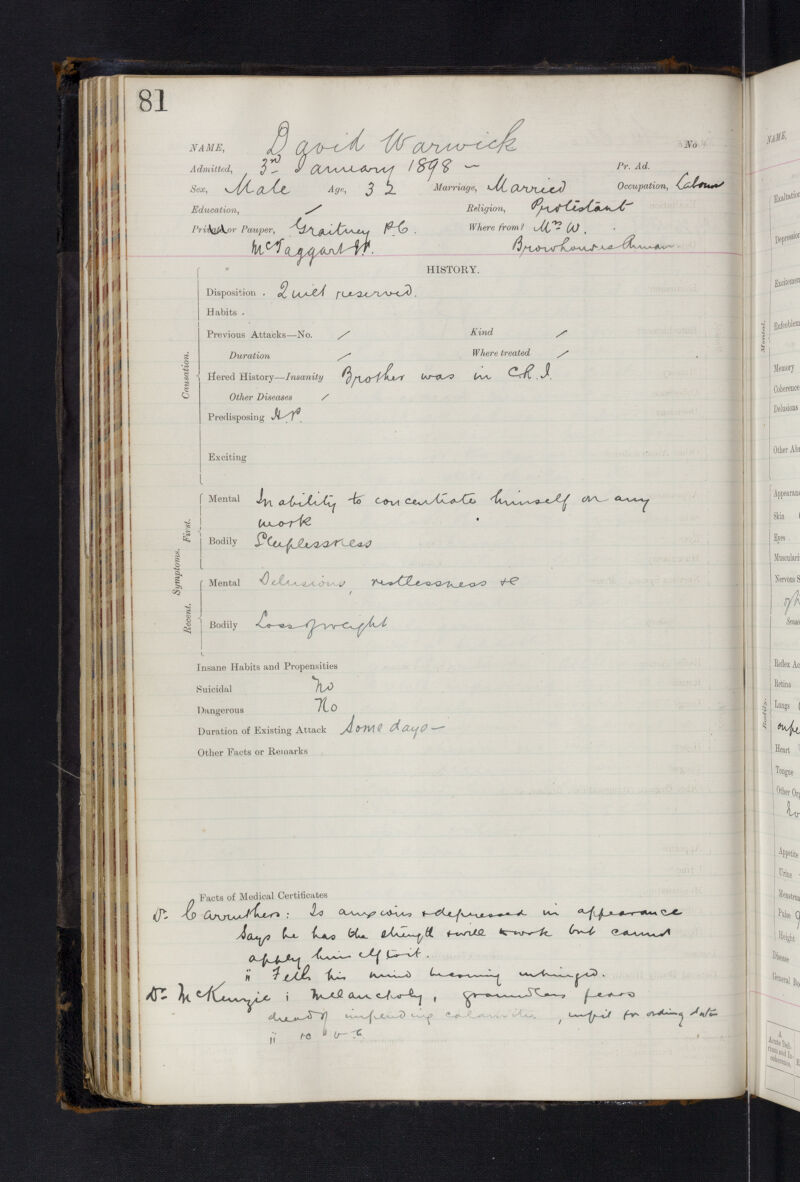 81
NAME, David Warwick No
Admitted, 3rd January 1898 – Pr. Ad.
Sex, Male Age, 32 Marriage, Married Occupation, Labour
Education, / Religion, Protestant
or Pauper, Graitney P.C. Where from? Mrs W.
McTaggart
HISTORY.
Causation.
Disposition . Quiet reserved.
Habits .
Previous Attacks—No. / Kind /
Duration / Where treated /
Hered History—Insanity Brother was in C.R.I.
Other Diseases /
Predisposing H.P.
Exciting
Symptoms.
First.
Mental Inability to concentrate himself on any
work
Bodily Sleeplessness
Recent.
Mental Delusions, restlessness &c
Bodily Loss of weight
Insane Habits and Propensities
Suicidal No
Dangerous No
Duration of Existing Attack Some days –
Other Facts or Remarks
Facts of Medical Certificates
Dr Carruthers: Is anxious & depressed in appearance
Says he has the strength & will to work but cannot
apply himself to it.
ii Feels his mind becoming unhinged.
Dr McKenzie i Melancholy, groundless fears
dread of impending calamities, unfit for
ii
NAME,
Mental.
Memory
Coherence
Delusions
Skin
Eyes
Bodily.
Retina
Lungs
Heart
Tongue
Appetite
Urine
Pulse
Height
Disease
A